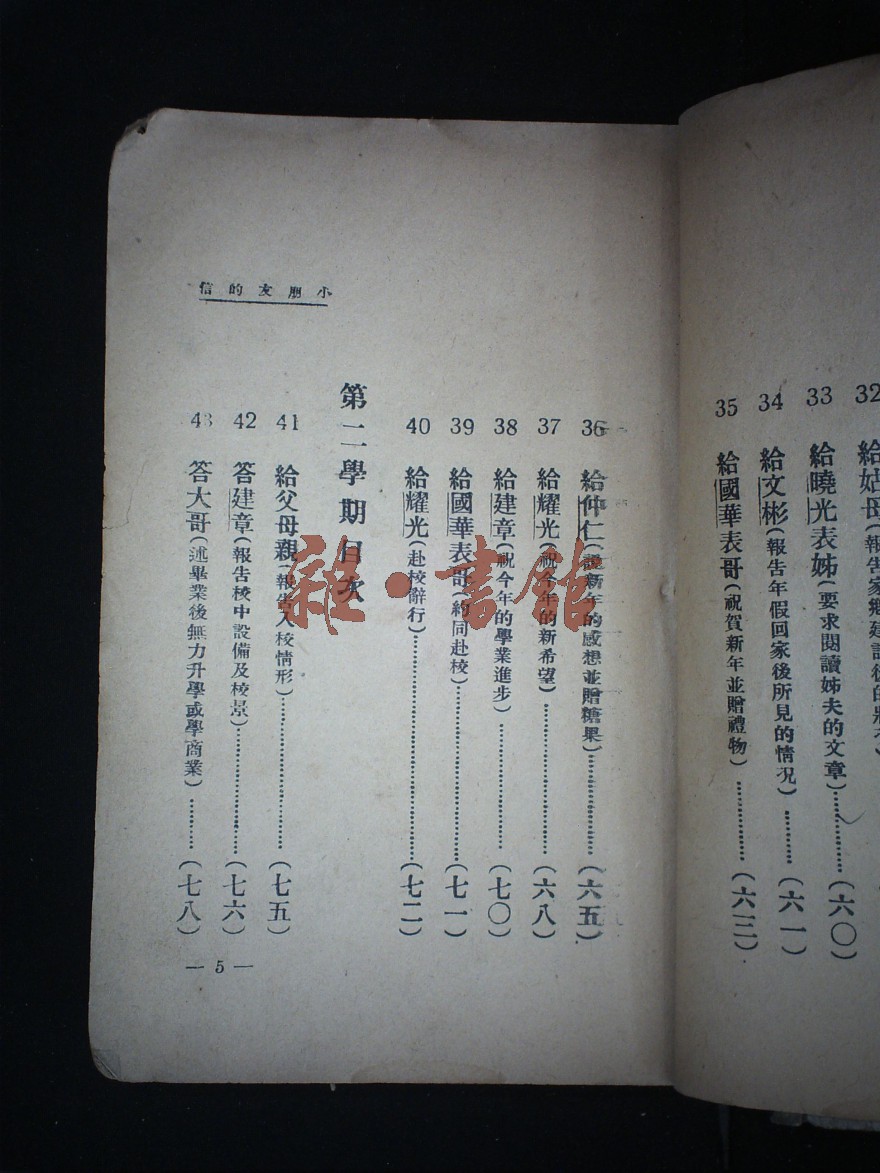 32 給姑母(報告家鄉建設後的狀
33 給曉光表姊(要求閱讀姊夫的文章)………(六〇)
34 給文彬(報告年假回家後所見的情況)………(六一)
35 給國華表哥(祝賀新年並贈禮物)………(六三)
小朋友的信
36 給仲仁(說新年的感想並贈糖果)………(六五)
37 給耀光(祝今年的新希望)………(六八)
38 給建章(祝今年的學業進步)………(七〇)
39 給國華表哥(約同赴校)………(七一)
40 給耀光(赴校辭行)………(七二)
第二學期目次
41 給父母親(報告入校情形)………(七五)
42 答建章(報告校中設備及校景)………(七六)
43 答大哥(述畢業後無力升學或學商業)………(七八)
— 5 —
雜·書館